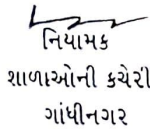 નિયામક
શાળાઓની કચેરી
ગાંધીનગર